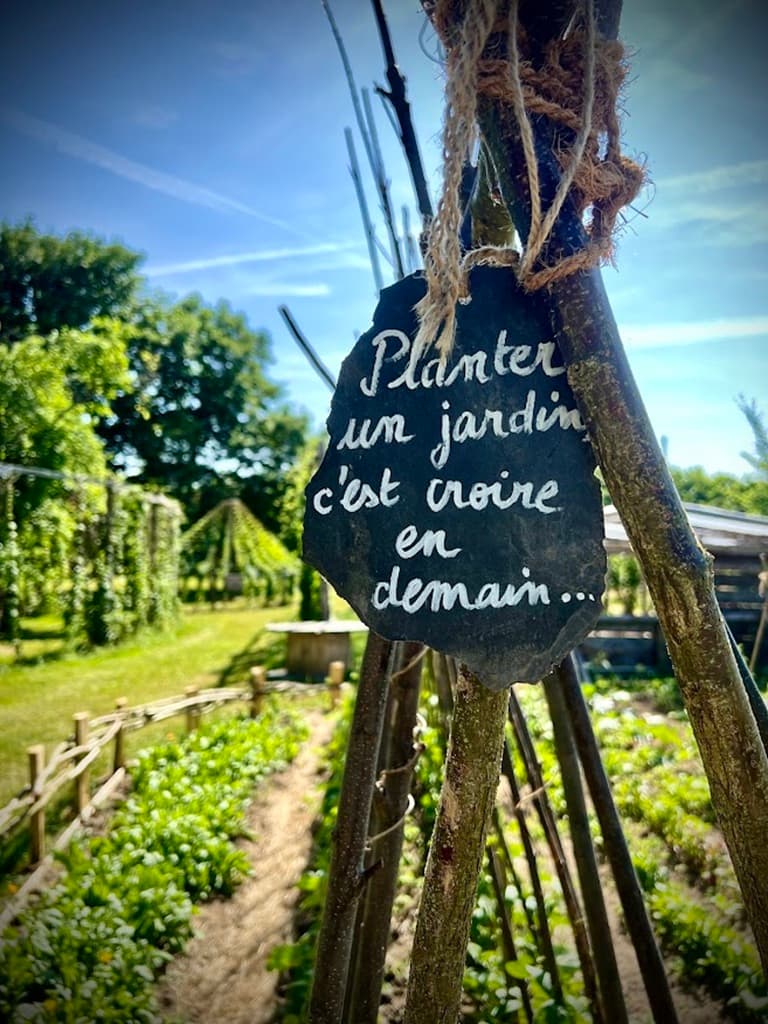 Planter
un jardin,
c'est croire
en
demain...